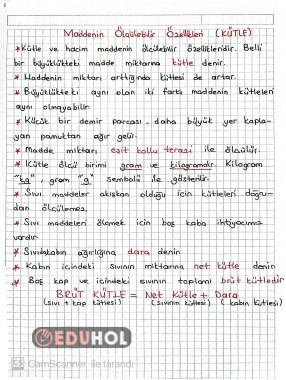 Maddenin Ölçülebilir Özellikleri (KÜTLE)
* Kütle ve hacim maddenin ölçülebilir özellikleridir. Belli
bir büyüklükteki madde miktarına kütle denir.
* Maddenin miktarı arttığında kütlesi de artar.
* Büyüklükteki aynı olan iki farklı maddenin kütleleri
aynı olmayabilir
* Küçük bir demir parçası, daha büyük yer kapla-
yan pamuktan ağır gelir.
* Madde miktarı eşit kollu terazi ile ölçülür.
* Kütle ölçü birimi gram ve kilogramdır. Kilogram
"kg", gram "g" sembolü ile gösterilir.
* Sıvı maddeler akışkan olduğu için kütleleri doğru-
dan ölçülemez.
* Sıvı maddeleri ölçmek için boş kaba ihtiyacımız
vardır
* kabın ağırlığına dara denir
* Kabın içindeki sıvının miktarına net kütle denir
* Boş kap ve içindeki sıvının toplamı brüt kütledir
BRÜT KÜTLE = Net Kütle + Dara
(sıvı + kap kütlesi) (sıvının kütlesi) (kabın kütlesi)
EDUHOL
CS CamScanner ile tarandı